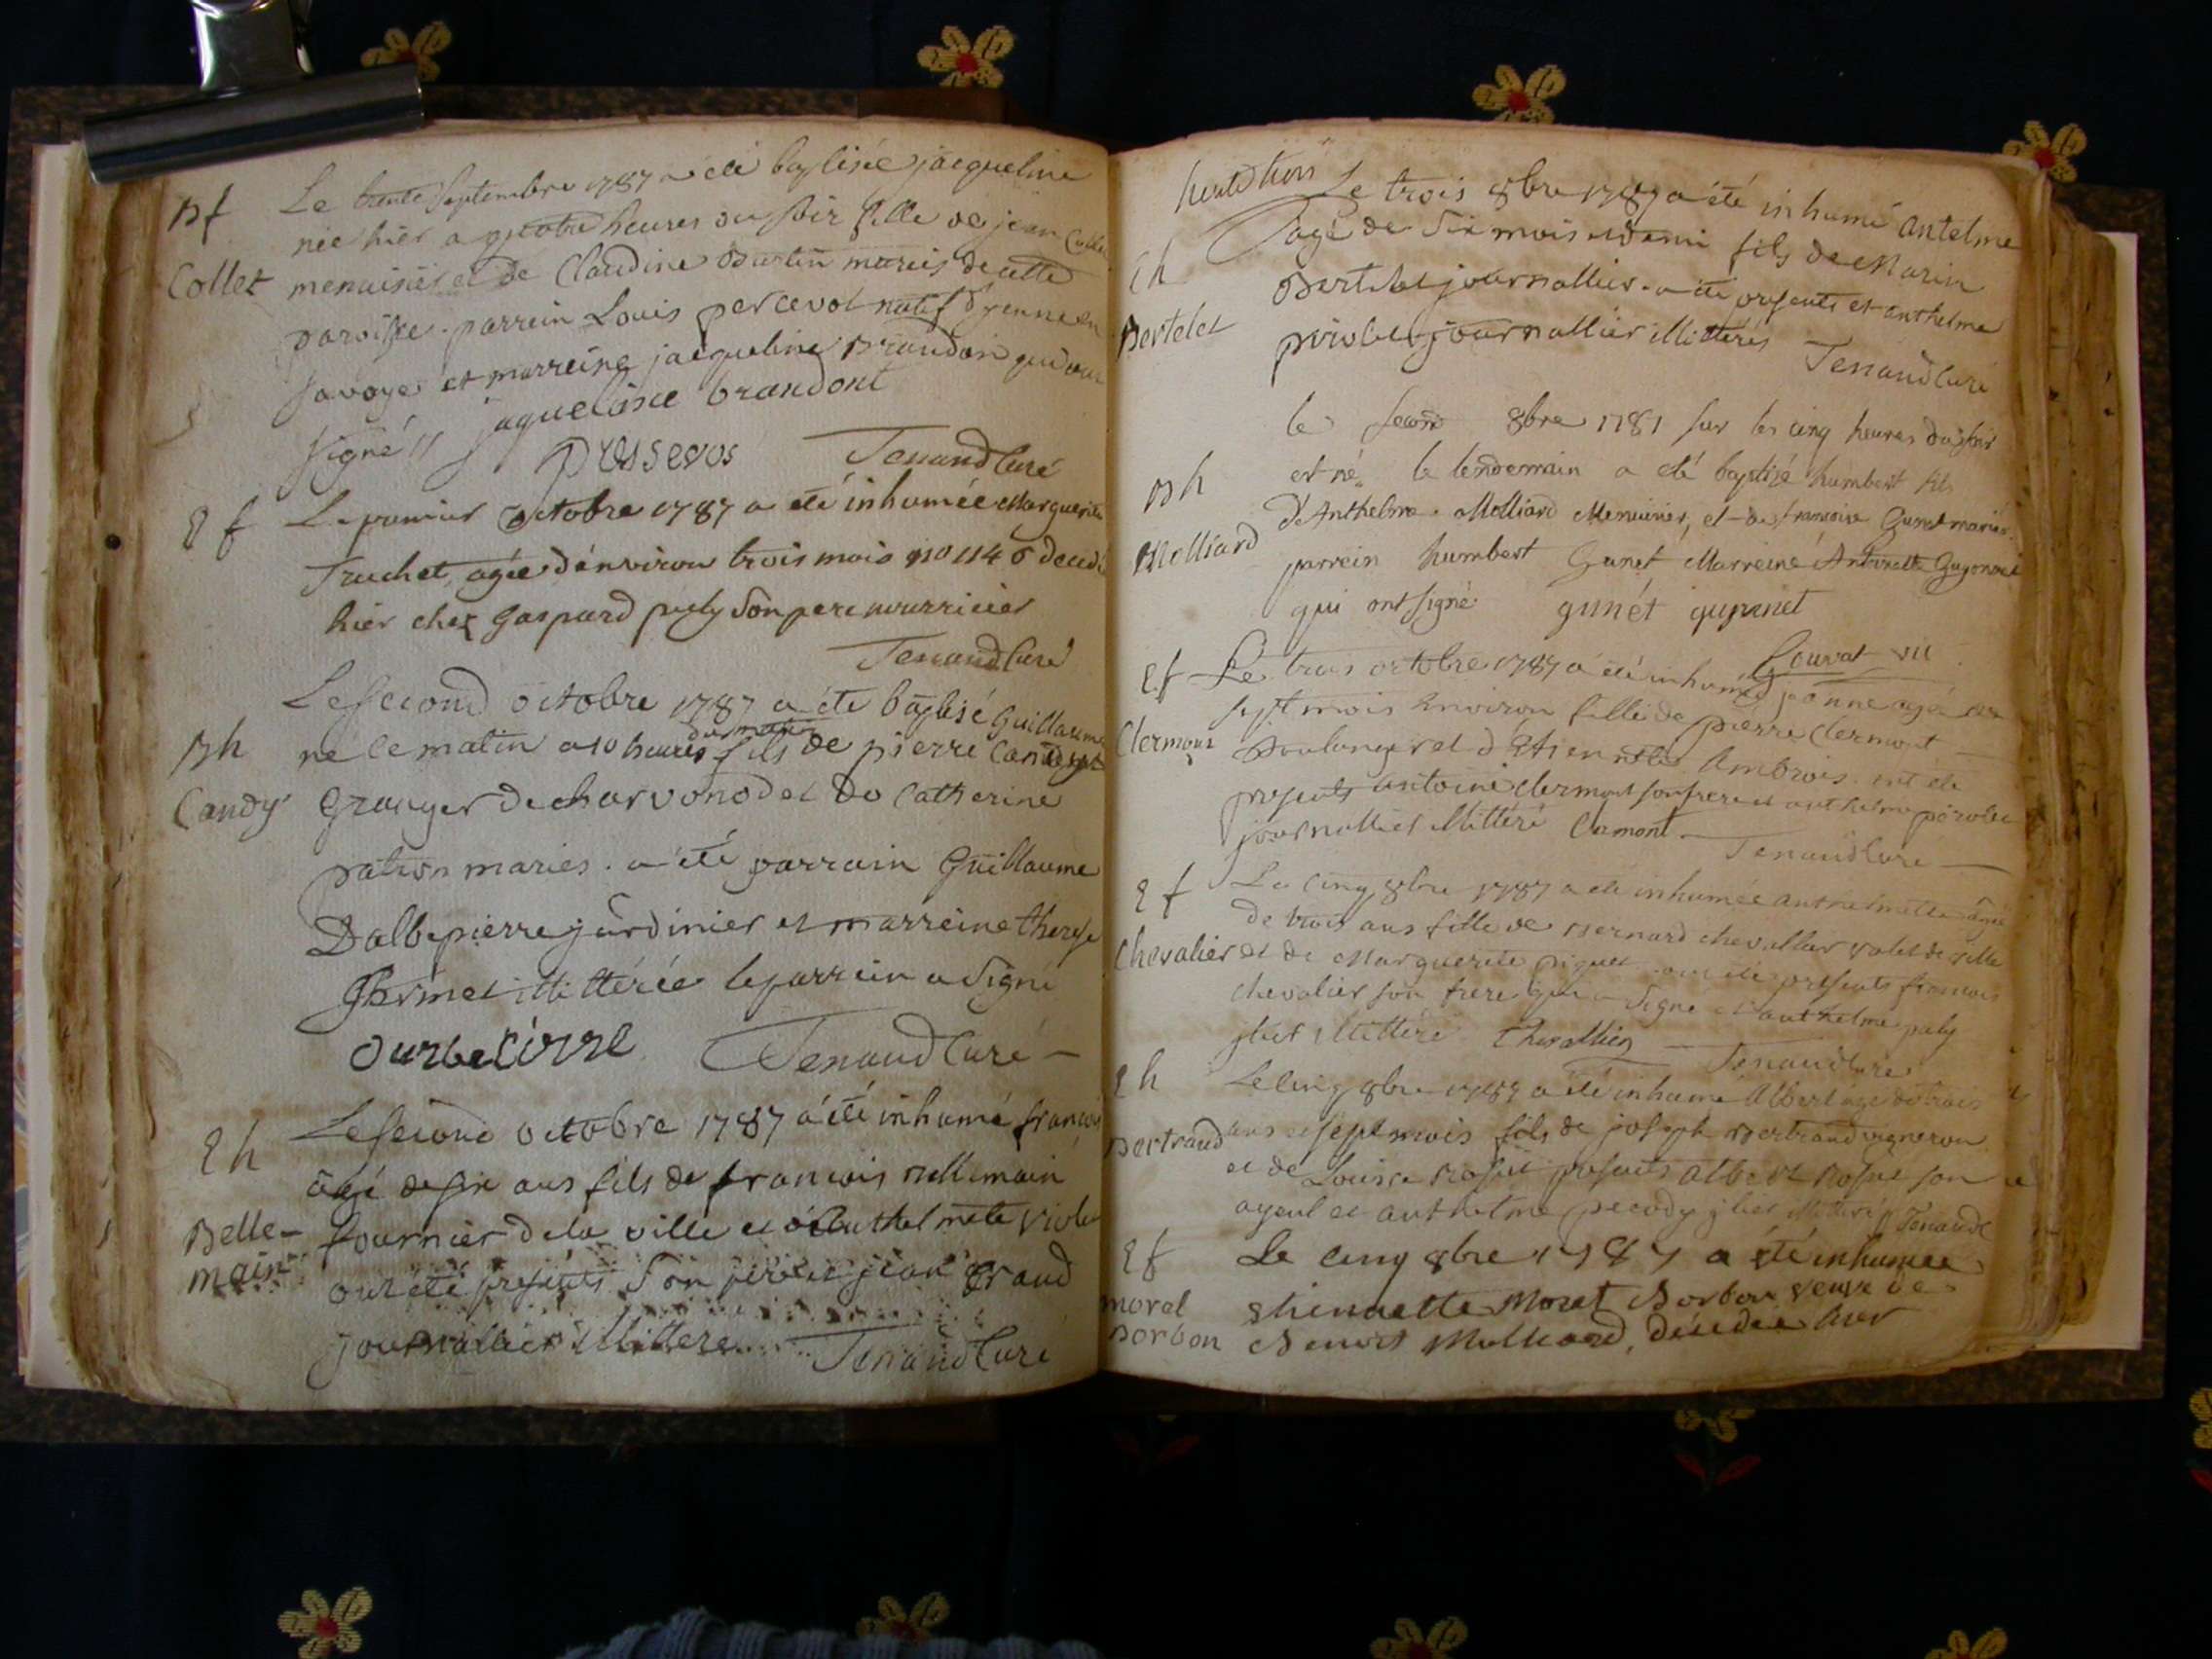 Bf
Collet
Le trente septembre 1787 a été baptisée jacqueline
née hier a quatre heures du soir fille de jean Collet
menuisier et de Claudine Burtin mariés de cette
paroisse. parrein Louis percevol natif d'yenne en
savoye et marreine jacqueline Brandon qui ont
signé //
jaqueline brandont
pressevos
Tenand Curé
E f
Le premier octobre 1787 a été inhumée Marguerite
Truchet, agée d'environ trois mois
hier chez Gaspard puly son pere nourricier
Tenand Curé
Bh
Candy
Le second octobre 1787 a été baptisé Guillaume
né ce matin a 10 heures du matin fils de pierre Candy
Granger de charvonod et de Catherine
patron mariés. a été parrain Guillaume
Dalbepierre jardinier et marreine therese
illitterée le parrein a signé
Tenand Curé
E h
Belle-
main
Le second octobre 1787 a été inhumé françois
agé de six ans fils de francois Bellemain
fournier de la ville et d'Anthelmete
ont été présents son pere et jean Grand
journallier illitteré
Tenand Curé
huitetrois
Eh
Bertelet
Le trois 8bre 1787 a été inhumé antelme
agé de six mois et demi fils de Marin
Bertelet journallier. a été présents et anthelme
journallier illitterés
Tenand Curé
Bh
Molliard
le second 8bre 1781 sur les cinq heures du soir
est né, le lendemain a été baptisé humbert fils
d'Anthelme Molliard Menuisier, et de françoise Gunet mariés.
parrein humbert Gunet Marreine Antoinette Guyonnet
qui ont signé gunét
Gouvat vic
Ef
Clermont
Le trois octobre 1787 a été inhumée jeanne agée de
sept mois environ fille de pierre Clermont
Boulanger et d'Etiennette Ambrois. ont été
présents antoine clermont son frere et anthelme
journallier illitteré Clermont
Tenand Curé
E f
Chevalier
Le cinq 8bre 1787 a été inhumée anthelmette agée
de trois ans fille de Bernard chevallier valet de ville
et de Marguerite piguet. ont été présents francois
chevalier son frere qui a signé et anthelme puly
jlier illitteré Chevallier
Tenand Curé
E h
Bertrand
Le cinq 8bre 1787 a été inhumé Albert agé de trois
ans et sept mois fils de joseph Bertrand vigneron
et de Louise Rosset présents albert Rosset son
ayeul et anthelme jlier illitteré // Tenand C
Ef
morel
Borbon
Le cinq 8bre 1787 a été inhumée
Morel Borbon veuve de
Benoit Molliard, décédée hier